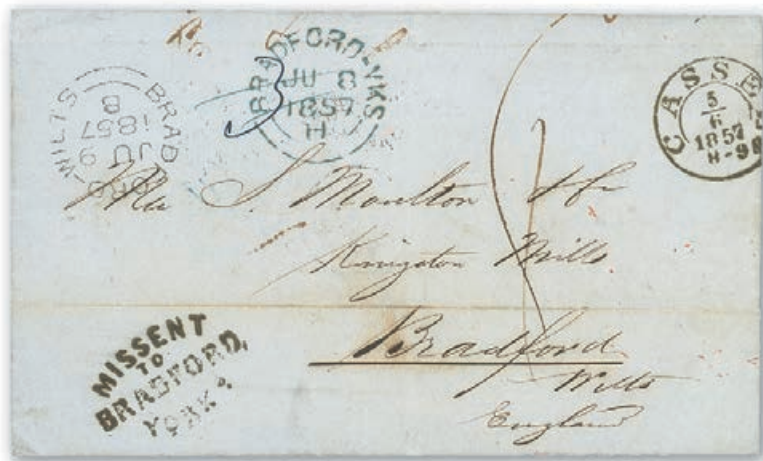 BRADFORD-YKS
JU 8
1857
H
3
BRADFORD-WILTS
JU 9
1857
B
CASSEL
5
6
1857
S. Moulton & Co
Kingston Mills
Bradford
Wilts
England
MISSENT
TO
BRADFORD,
YORKS.